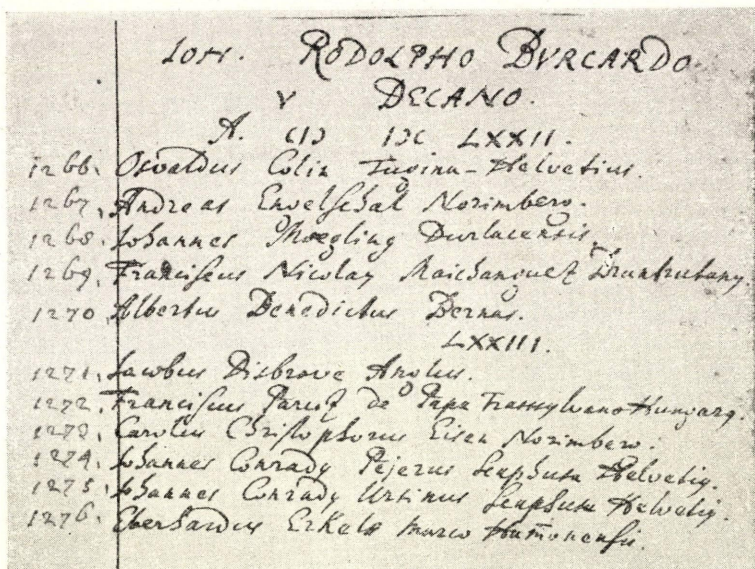 IOH. RODOLPHO BVRCARDO
DECANO.
A. CIↃ IↃC LXXII.
1266. Osvaldus Colin Tugina-Helvetius.
1267. Andreas Engelschal Norimberg.
1268. Iohannes Moegling Durlacensis
1269. Franciscus Nicolaỹ
1270. Albertus Benedictus Bernas.
LXXIII.
1271. Iacobus Disbrowe Anglus.
1272. Franciscus Pariz de Papa Transylvano-Hungarq.
1273. Carolus Christophorus Eisen Norimberg.
1274. Iohannes Conradq Pejerus Scaphusa Helvetiq.
1275. Iohannes Conradq Ursinus Scaphusa Helvetiq.
1276. Eberhardus